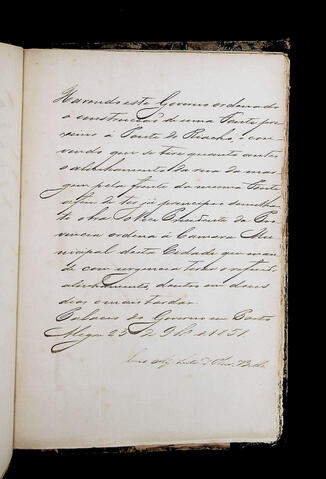 Havendo este Governo ordenado
a construcção de uma Ponte pro
ximo á Ponte do Riacho, e con
vindo que se tire quanto antes
o alinhamento da rua da mar
gem pela frente da mesma Ponte
afim de ter já principio semelhan
te obra o Presidente da Pro
vincia ordena á Camara Mu
nicipal desta Cidade que man
de com urgencia tirar o referido
alinhamento, dentro em douz
dias o mais tardar.
Palacio do Governo em Porto
Alegre 25 de 9br.o de 1851.